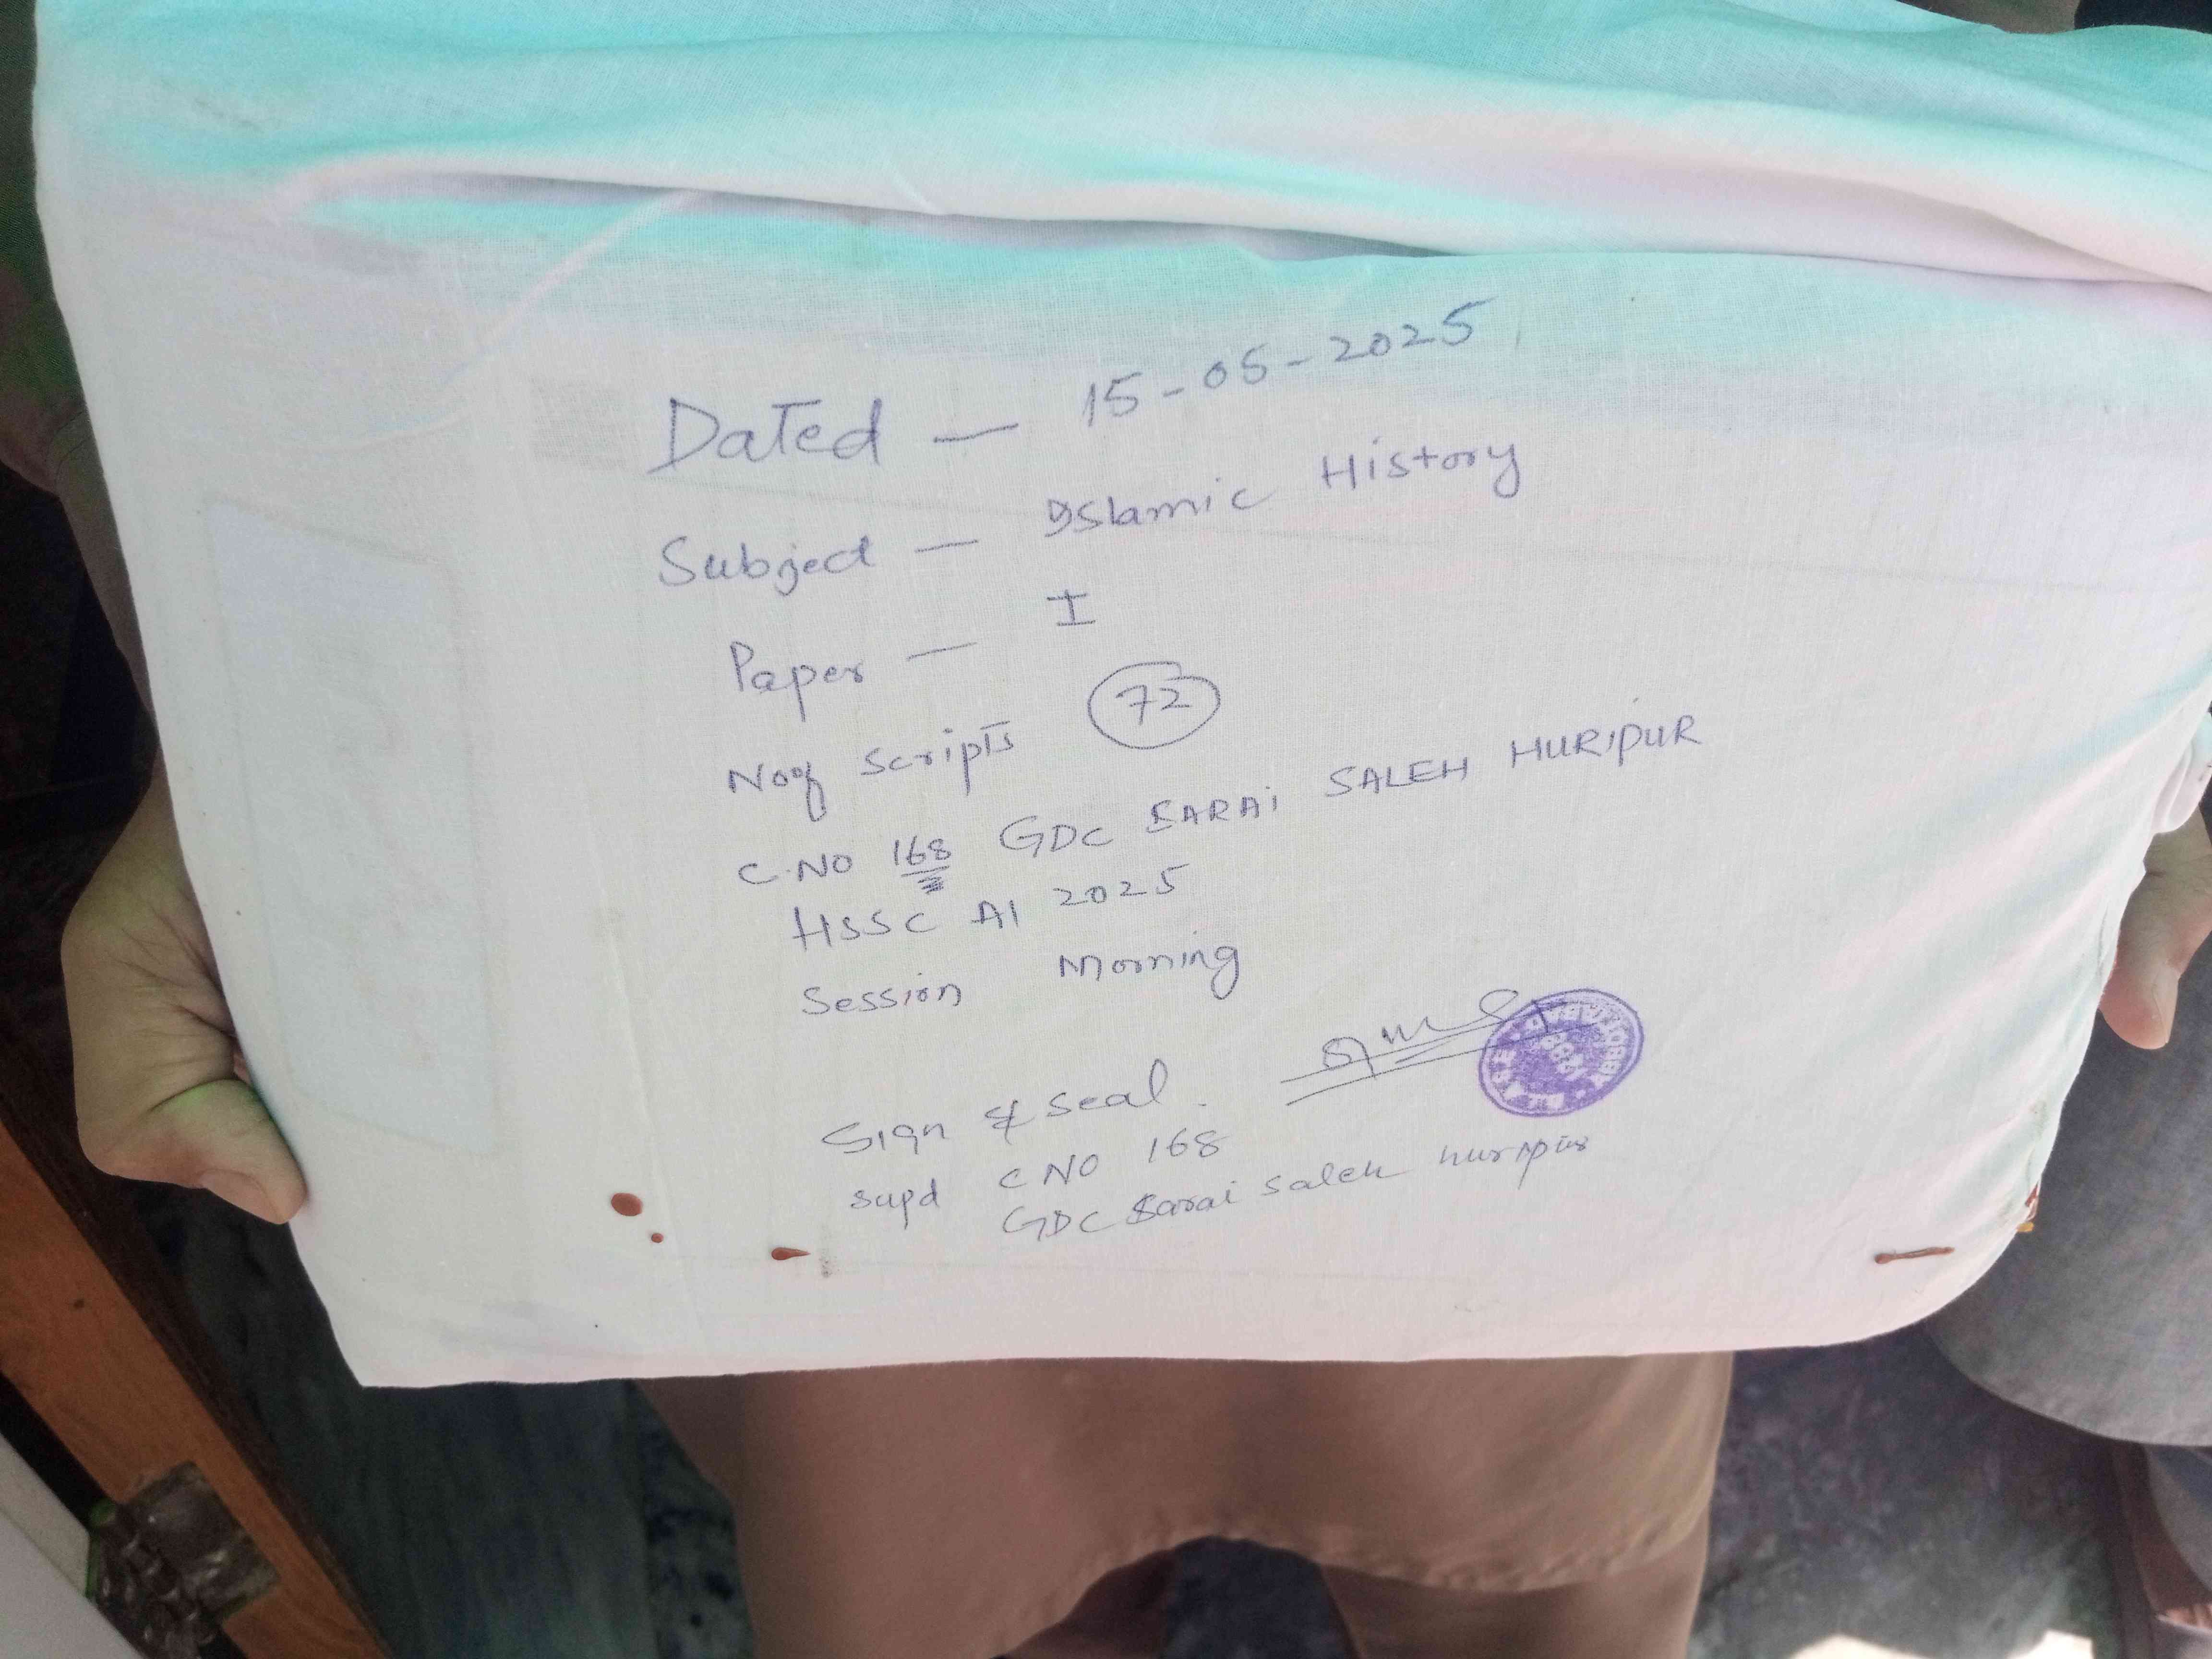 Dated — 15-05-2025
Subject — Islamic History
Paper — I
No of Scripts 72
C.NO 168 GDC SARAi SALEH HURIPUR
HSSC A1 2025
Session Morning
Sign & Seal.
supd C NO 168
GDC Sarai Saleh huripur